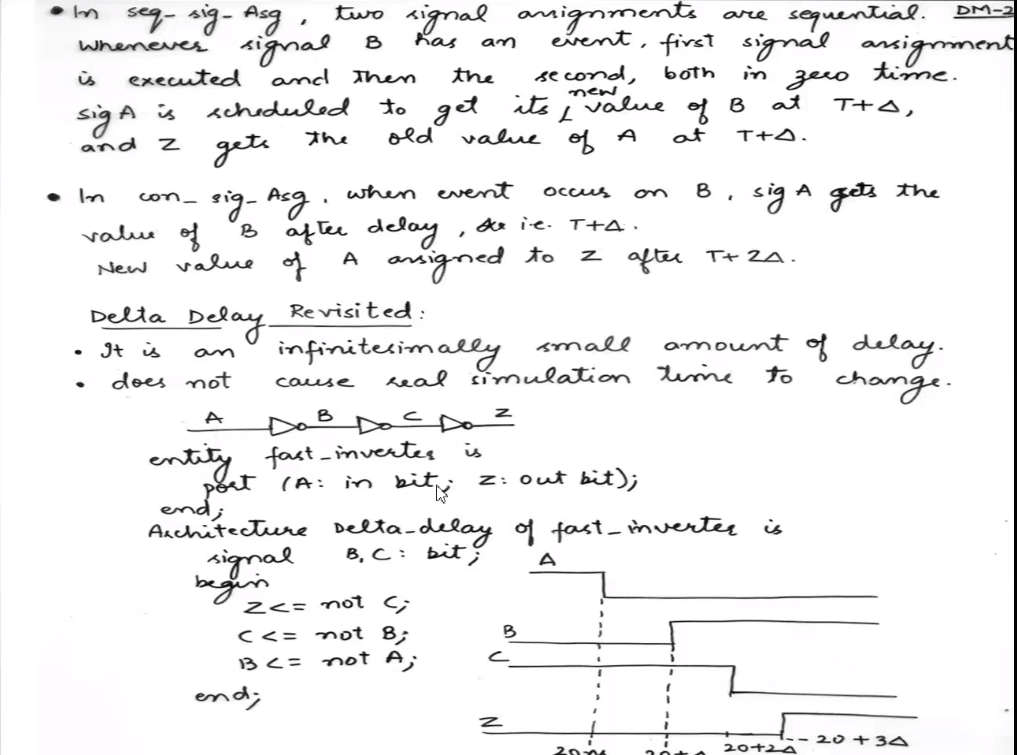 • In seq-sig-Asg, two signal assignments are sequential. DM-2
Whenever signal B has an event, first signal assignment
is executed and then the second, both in zero time.
sig A is scheduled to get its new value of B at T+Δ,
and Z gets the old value of A at T+Δ.
• In con-sig-Asg, when event occus on B, sig A gets the
value of B after delay, i.e. T+Δ.
New value of A assigned to Z after T+2Δ.
Delta Delay Revisited:
• It is an infinitesimally small amount of delay.
• does not cause real simulation time to change.
A B C Z
entity fast-inverter is
port (A: in bit; Z: out bit);
end;
Architecture Delta-delay of fast-inverter is
signal B, C: bit;
begin
Z<= not C;
C<= not B;
B<= not A;
end;
A
B
C
Z
20+2Δ
20+3Δ